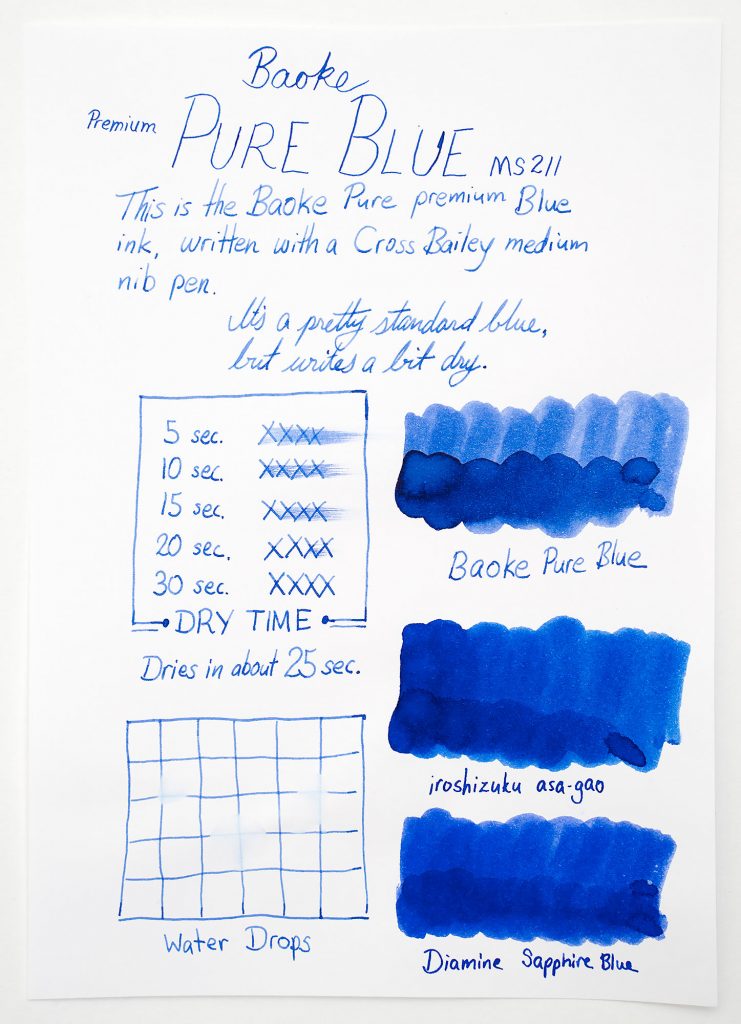 Baoke
Premium PURE BLUE MS211
This is the Baoke Pure premium Blue
ink, written with a Cross Bailey medium
nib pen.
It's a pretty standard blue,
but writes a bit dry.
5 sec. XXXX
10 sec. XXXX
15 sec. XXXX
20 sec. XXXX
30 sec. XXXX
DRY TIME
Dries in about 25 sec.
Water Drops
Baoke Pure Blue
iroshizuku asa-gao
Diamine Sapphire Blue